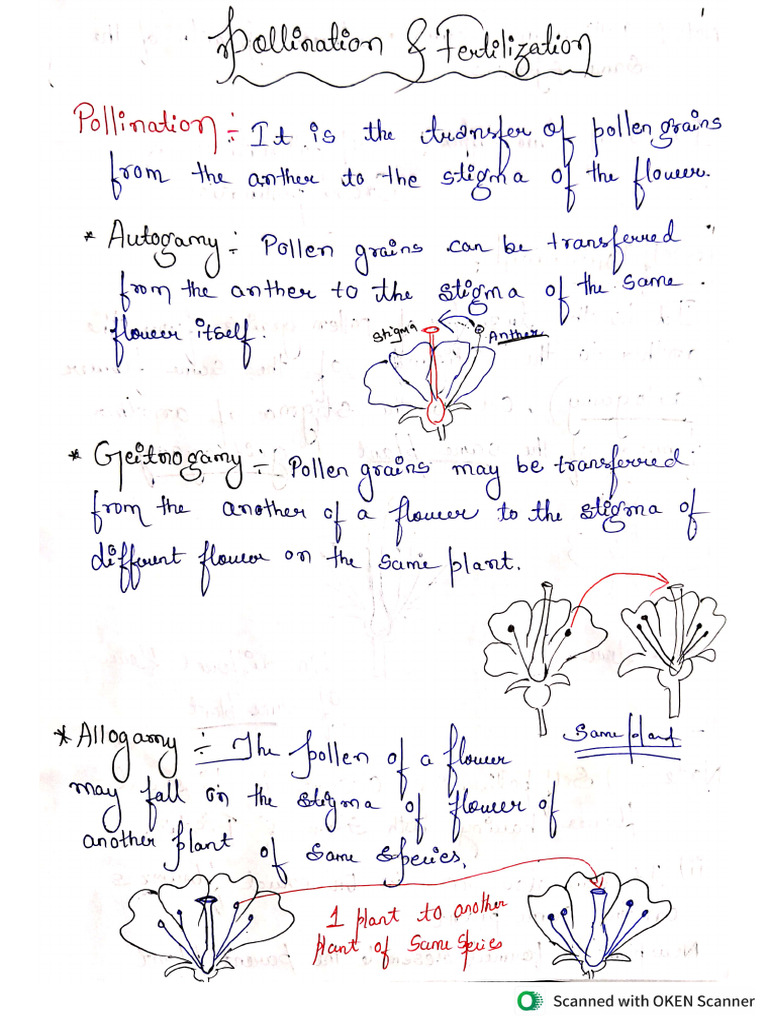 Pollination & Fertilization
Pollination :- It is the transfer of pollen grains
from the anther to the stigma of the flower.
* Autogamy :- Pollen grains can be transferred
from the anther to the stigma of the same
flower itself.
stigma
Anther
* Geitnogamy :- Pollen grains may be transferred
from the another of a flower to the stigma of
different flower on the same plant.
Same plant
* Allogamy :- The pollen of a flower
may fall on the stigma of flower of
another plant of same species.
1 plant to another
plant of same speries
Scanned with OKEN Scanner